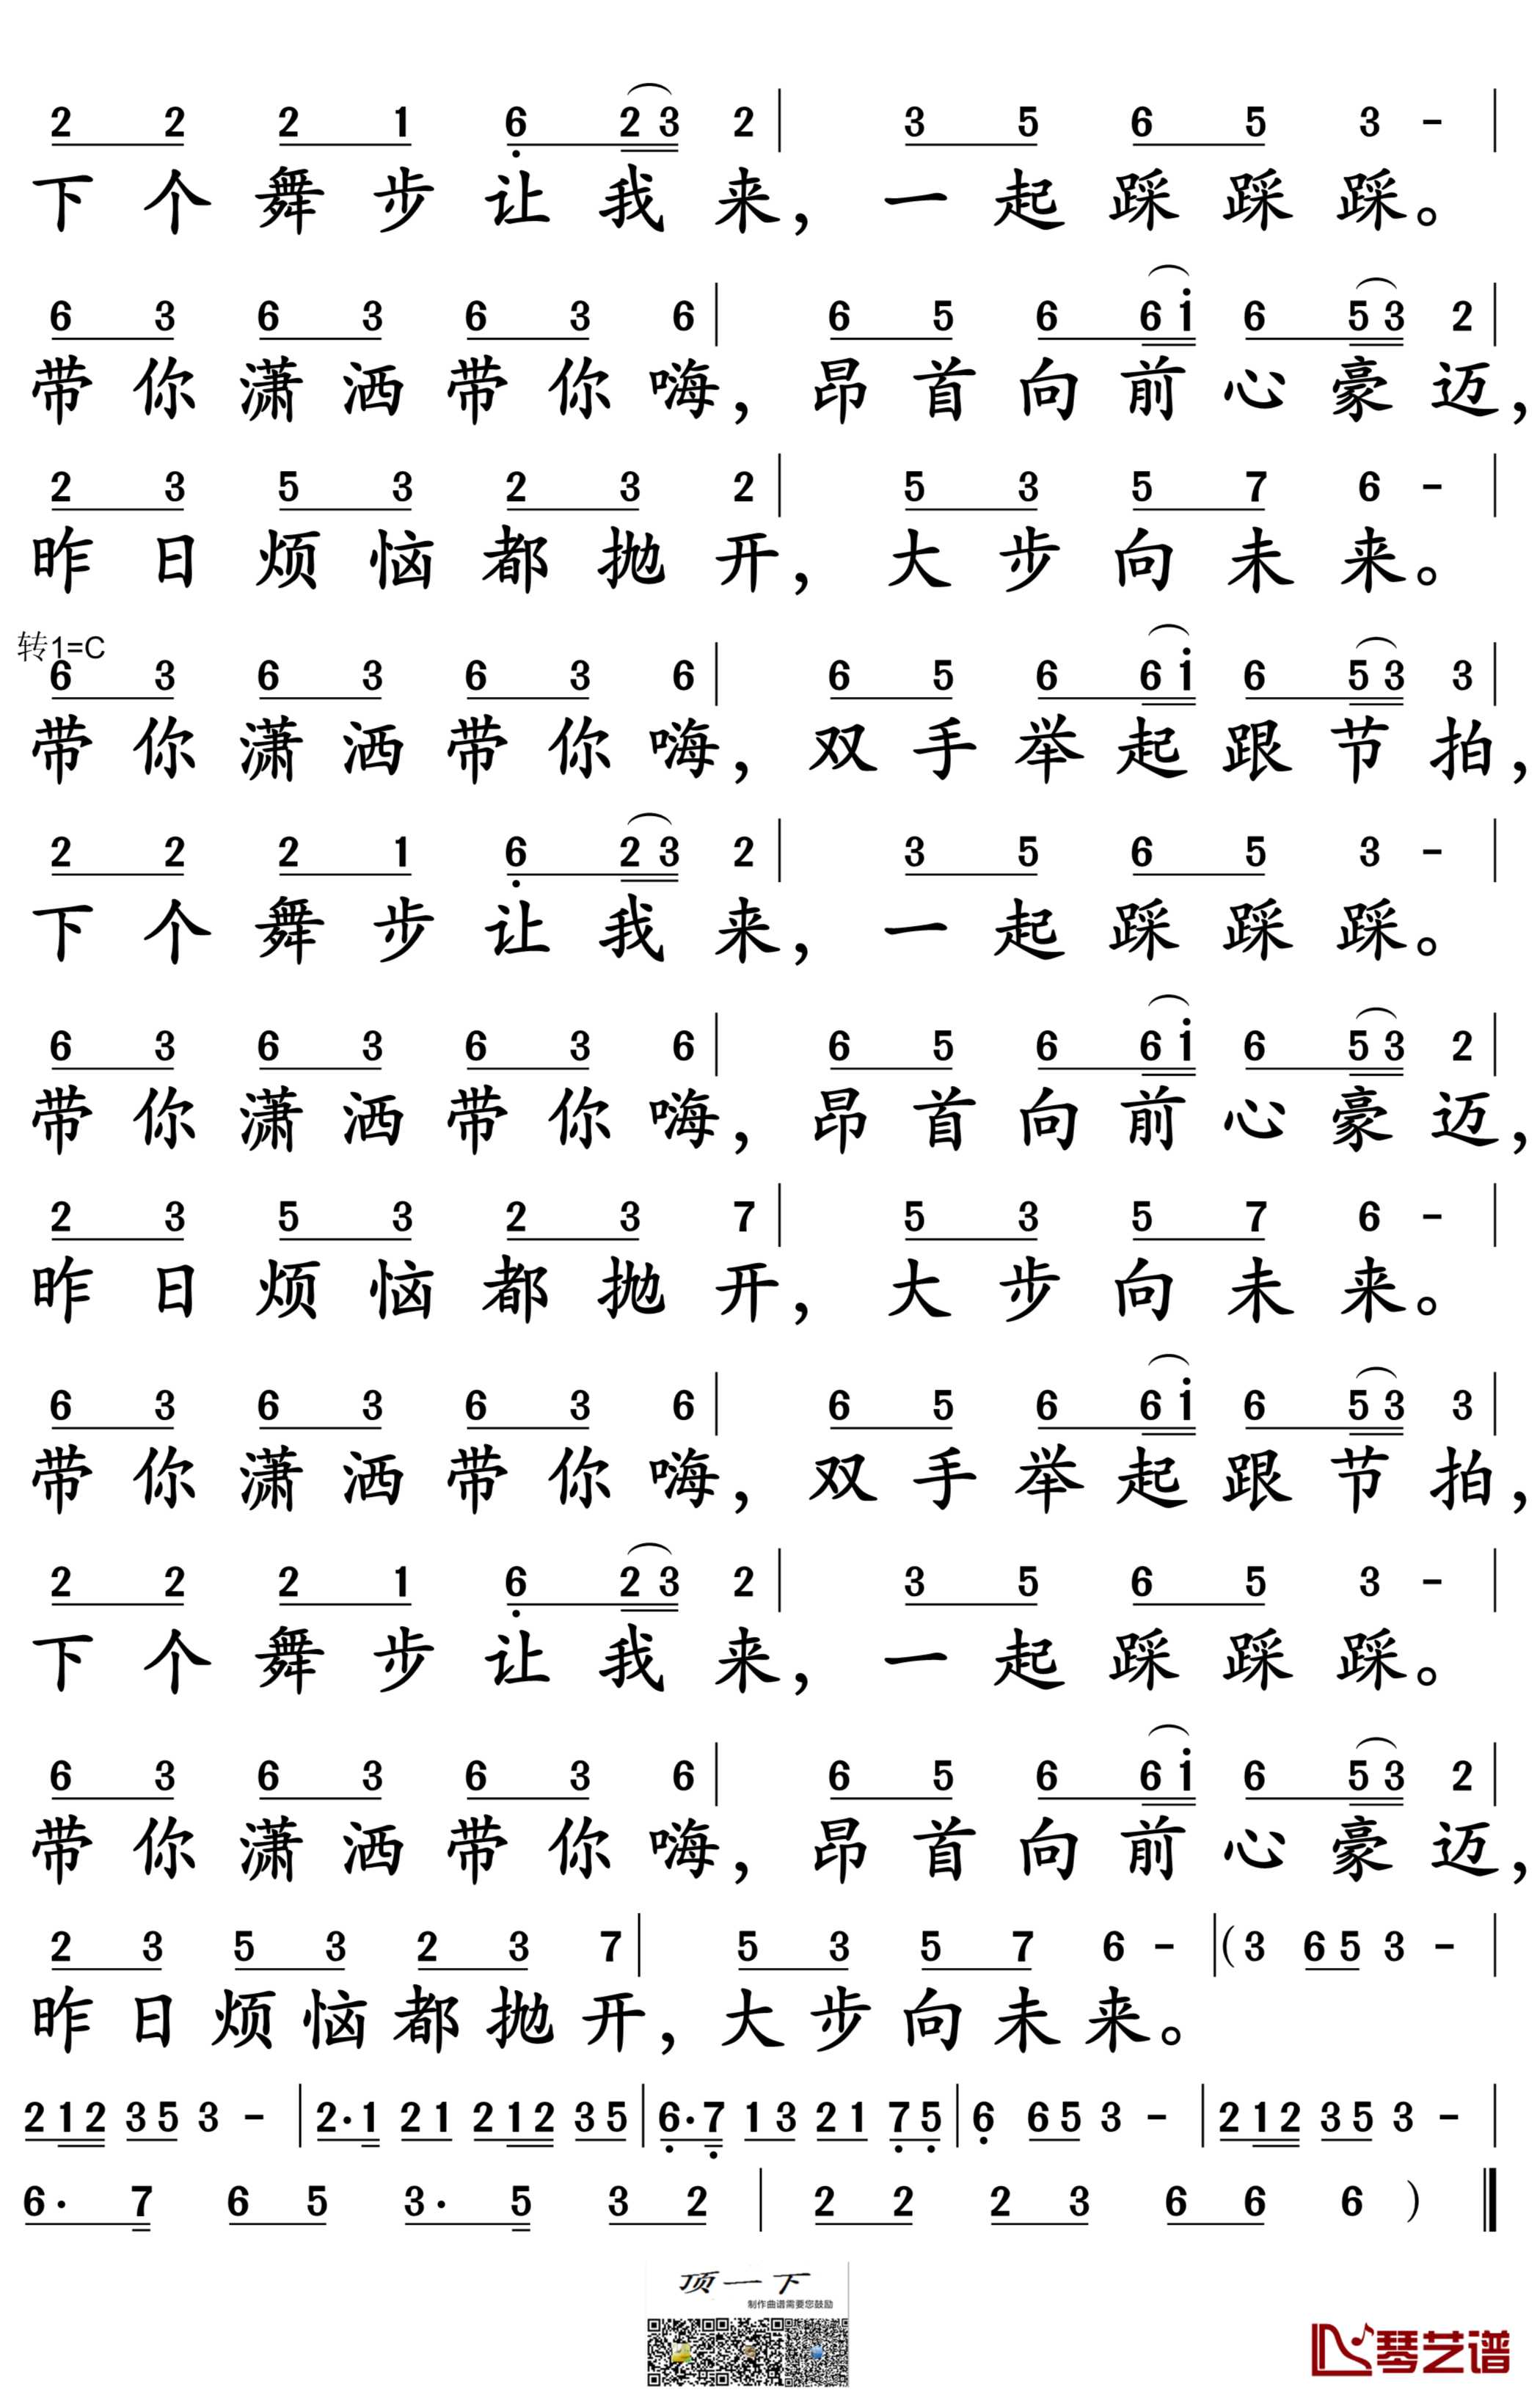 2 2 2 1 6 2 3 2 | 3 5 6 5 3 - |
下个舞步让我来，一起踩踩踩。
6 3 6 3 6 3 6 | 6 5 6 6 i 6 5 3 2 |
带你潇洒带你嗨，昂首向前心豪迈，
2 3 5 3 2 3 2 | 5 3 5 7 6 - |
昨日烦恼都抛开，大步向未来。
转1=C
6 3 6 3 6 3 6 | 6 5 6 6 i 6 5 3 3 |
带你潇洒带你嗨，双手举起跟节拍，
2 2 2 1 6 2 3 2 | 3 5 6 5 3 - |
下个舞步让我来，一起踩踩踩。
6 3 6 3 6 3 6 | 6 5 6 6 i 6 5 3 2 |
带你潇洒带你嗨，昂首向前心豪迈，
2 3 5 3 2 3 7 | 5 3 5 7 6 - |
昨日烦恼都抛开，大步向未来。
6 3 6 3 6 3 6 | 6 5 6 6 i 6 5 3 3 |
带你潇洒带你嗨，双手举起跟节拍，
2 2 2 1 6 2 3 2 | 3 5 6 5 3 - |
下个舞步让我来，一起踩踩踩。
6 3 6 3 6 3 6 | 6 5 6 6 i 6 5 3 2 |
带你潇洒带你嗨，昂首向前心豪迈，
2 3 5 3 2 3 7 | 5 3 5 7 6 - | (3 6 5 3 - |
昨日烦恼都抛开，大步向未来。
2 1 2 3 5 3 - | 2· 1 2 1 2 1 2 3 5 | 6· 7 1 3 2 1 7 5 | 6 6 5 3 - | 2 1 2 3 5 3 - |
6· 7 6 5 3· 5 3 2 | 2 2 2 3 6 6 6 ) ‖
顶一下
制作曲谱需要您鼓励
琴艺谱